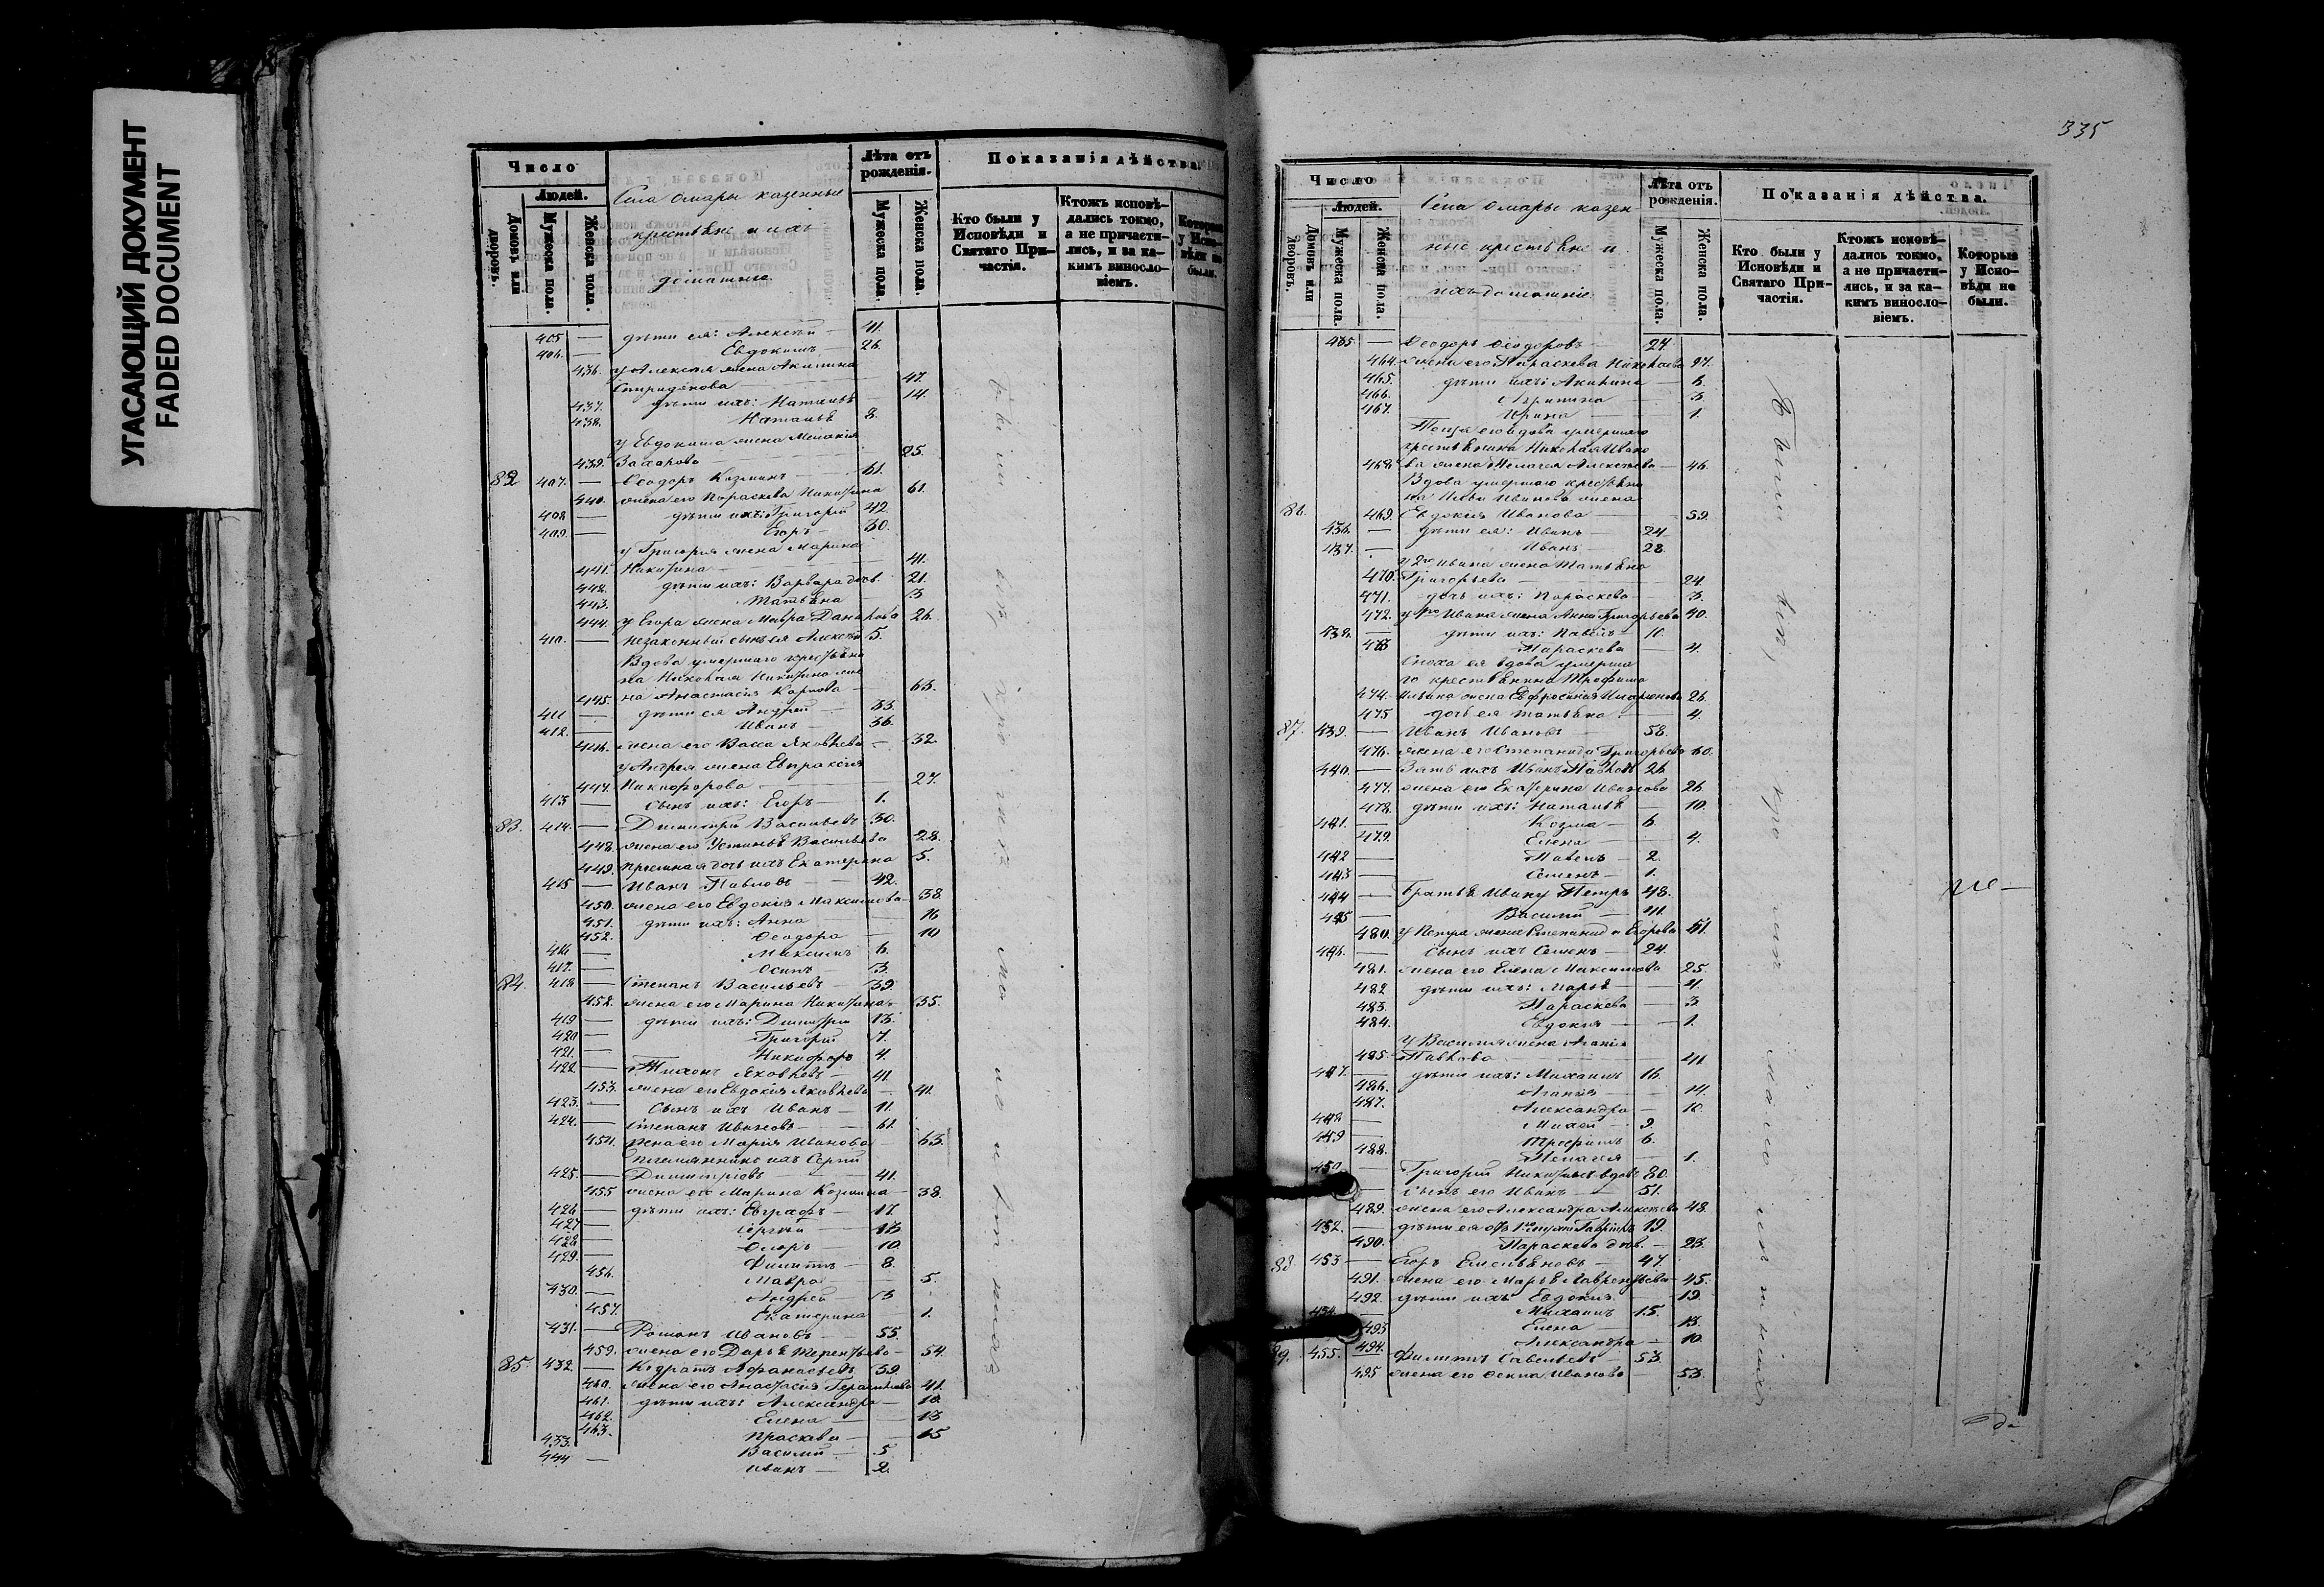 УГАСАЮЩИЙ ДОКУМЕНТ
FADED DOCUMENT
Число
Людей.
Домовъ или дворовъ.
Мужеска пола.
Женска пола.
Села Омары казенные
крестьяне и ихъ
домашніе
Лѣта отъ рожденія.
Мужеска пола.
Женска пола.
Показанія дѣйства.
Кто были у Исповѣди и Святаго Причастія.
Ктожъ исповѣдались токмо, а не причастились, и за какимъ винословіемъ.
Которые у Исповѣди не были.
405 — дѣти ея: Алексѣй — 41.
406. — Евдокимъ — 26.
436. у Алексѣя жена Акилина
Спиридонова — 47.
437. дѣти ихъ: Наталья — 14.
438. Наталья 8.
у Евдокима жена
439. Захарова — 25.
82 407. — Ѳеодоръ Козминъ — 61.
440. жена его Параскева Никитина 61.
408 — дѣти ихъ: Григорій 42.
409. — Егоръ — 30.
у Григорія жена Марина
441. Никитина — 41.
442. дѣти ихъ: Варвара дѣв. 21.
443. Татьяна — 3
444. у Егора жена Мавра Данилова 26.
410. — незаконный сынъ ея Алексѣй 5.
Вдова умершаго крестьяни
на Николая Никитина же
445. на Анастасія Карпова — 63.
411 — дѣти ея Андрей — 33.
412. — Иванъ — 36.
446. жена его Васса Яковлева — 32
у Андрея жена Евпраксія
447. Никифорова — 27.
413 — сынъ ихъ: Егоръ — 1.
83. 414. — Димитрій Васильевъ 30.
448. жена его Устинья Васильева 28.
449. пріемная дочь ихъ Екатерина 5.
415 — Иванъ Павловъ — 42.
450. жена его Евдокія Максимова — 38.
451. дѣти ихъ: Анна 16
452. Ѳеодора — 10
416 — Максимъ 6.
417. — Осипъ — 3.
84. 418 — Степанъ Васильевъ — 39.
452. жена его Марина Никитина — 35.
419 — дѣти ихъ: Димитрій 13.
420 — Григорій 7.
421. — Никифоръ 4.
422 — Тихонъ Яковлевъ — 41.
453. жена его Евдокія Яковлева — 41.
423. — сынъ ихъ Иванъ — 11.
424. — Степанъ Ивановъ — 61.
454. жена его Марія Иванова — 63.
племянникъ ихъ Сергій
425. — Димитріевъ — 41.
455 жена его Марина Козмина — 38.
426 — дѣти ихъ: Евграфъ — 17.
427 — Сергѣй — 13
428 — Флоръ — 10.
429. — Филиппъ — 8.
456. Мавра — 5.
430. — Андрей — 3
457. Екатерина 1.
431. — Романъ Ивановъ — 55.
459. жена его Дарья Терентьева — 54.
85. 432. — Кодратъ Аѳанасьевъ 39.
460. жена его Анастасія Герасимова 41.
461. дѣти ихъ: Александра — 18.
462. Елена — 13
463. Праскева — 15
433. Василій — 5.
444 — Иванъ — 2.
335
Число
Людей.
Домовъ или дворовъ.
Мужеска пола.
Женска пола.
Села Омары казен
ные крестьяне и
ихъ домашніе
Лѣта отъ рожденія.
Мужеска пола.
Женска пола.
Показанія дѣйства.
Кто были у Исповѣди и Святаго Причастія.
Ктожъ исповѣдались токмо, а не причастились, и за какимъ винословіемъ.
Которые у Исповѣди не были.
435 — Ѳеодоръ Ѳеодоровъ — 24
464. жена его Параскева Николаева 27.
465. дѣти ихъ: Акилина — 6.
466. — 3.
467. Ирина — 1.
Теща его вдова умершаго
крестьянина Николая Ивано
468 ва жена Пелагея Алексѣева — 46.
Вдова умершаго крестьяни
на Ильи Иванова жена
86. 469. Евдокія Иванова — 59.
436. — дѣти ея: Иванъ — 24
437. — Иванъ — 28.
у 2го Ивана жена Татьяна
470. Григорьева — 24.
471. дочь ихъ: Параскева — 3.
472. у 1го Ивана жена Анна Григорьева 40.
438. — дѣти ихъ: Павелъ — 10.
473 Параскева — 4.
Сноха ея вдова умерша
го крестьянина Трофима
474. Ильина жена Евфросинія Иларіонова 26.
475 дочь ея Татьяна — 4.
87. 439. — Иванъ Ивановъ — 58.
476. жена его Степанида Григорьева 60.
440. — Зять ихъ Иванъ Павловъ 26.
477. жена его Екатерина Иванова 26
478. дѣти ихъ: Наталья — 10.
441. — Козма — 6.
479. Елена — 4.
442 — Павелъ — 2.
443 — Семенъ — 1.
444 — Братья Ивану Петръ 48.
445 — Василій — 41.
480. у Петра жена Степанида Егорова 51.
446. — сынъ ихъ Семенъ — 24.
481. жена его Елена Максимова 25.
482 дѣти ихъ: Марья — 4.
483. Параскева — 3
484. Евдокія — 1.
у Василія жена Агапія
485. Павлова — 41
447. — дѣти ихъ: Михаилъ 16.
486. Агапія — 14.
487. Александра — 10.
448 — 9.
449 — Трофимъ 6.
488. Пелагея — 1.
450. — Григорій Никитинъ вдовъ 80.
— сынъ его Иванъ — 51.
489. жена его Александра Алексѣева 48.
452. — дѣти ея отъ 1го мужа Гавріилъ 19
490. Параскева дѣв. — 23.
88 453 — Егоръ Емельяновъ — 47.
491. жена его Марья Лаврентьева — 45.
492. дѣти ихъ Евдокія — 19.
454. — Михаилъ 15.
493 Елена — 13.
494. Александра — 10.
89. 455. Филиппъ Савельевъ — 53.
495 жена его Ѳекла Иванова — 53.